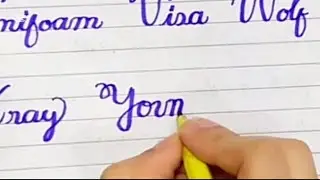 nifoam Visa Wolf
ray Yorn